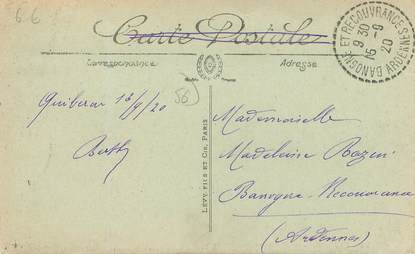 6.6
Carte Postale
Correspondance
Adresse
BANOGNE ET RECOUVRANCE
9 30
15 - 9
20
ARDENNES
Quiberon 13/9/20
Berthe
56
LEVY FILS ET CIE, PARIS
Mademoiselle
Madeleine Bozin
Banogne-Recouvrance
(Ardennes)